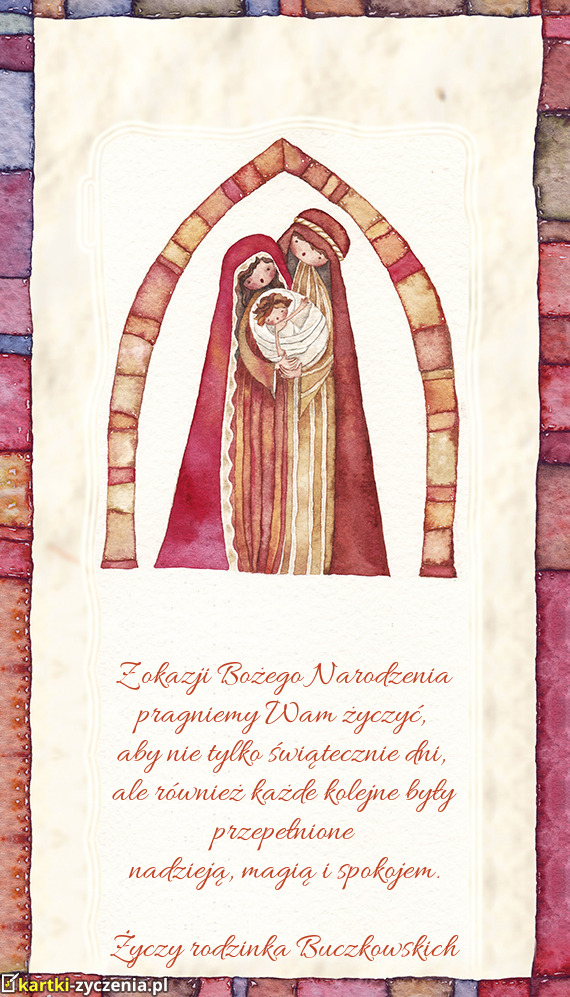 Z okazji Bożego Narodzenia
pragniemy Wam życzyć,
aby nie tylko świątecznie dni,
ale również każde kolejne były
przepełnione
nadzieją, magią i spokojem.
Życzy rodzinka Buczkowskich
kartki-zyczenia.pl